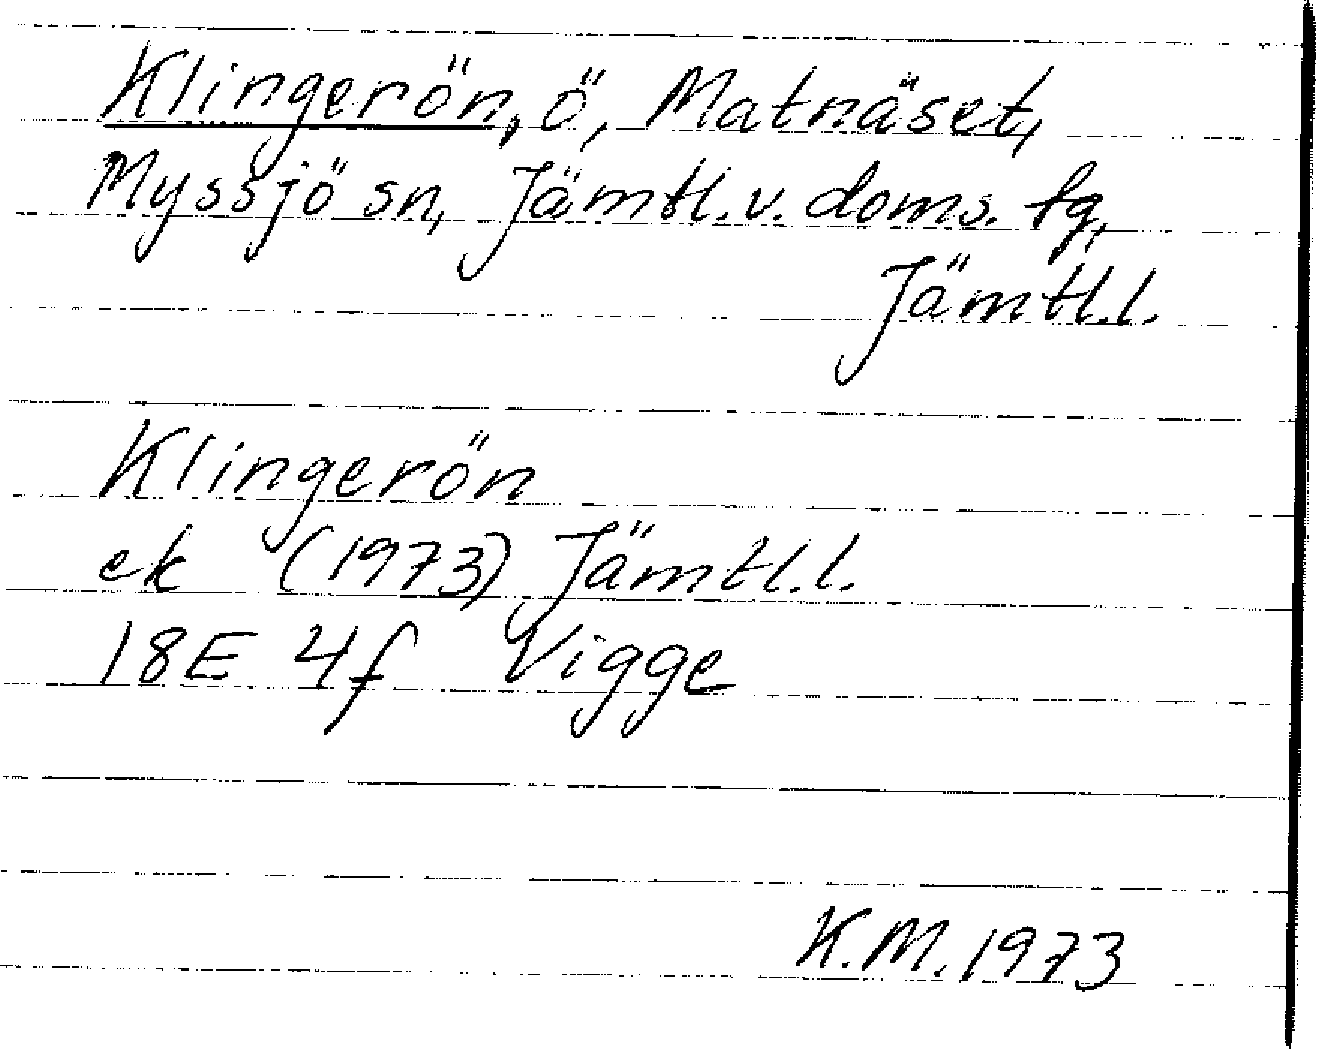 Klingerön, ö, Matnäset,
Myssjö sn, Jämtl. v. doms. tg,
Jämtl. l.
Klingerön
ek (1973) Jämtl. l.
18E 4f Vigge
K.M. 1973